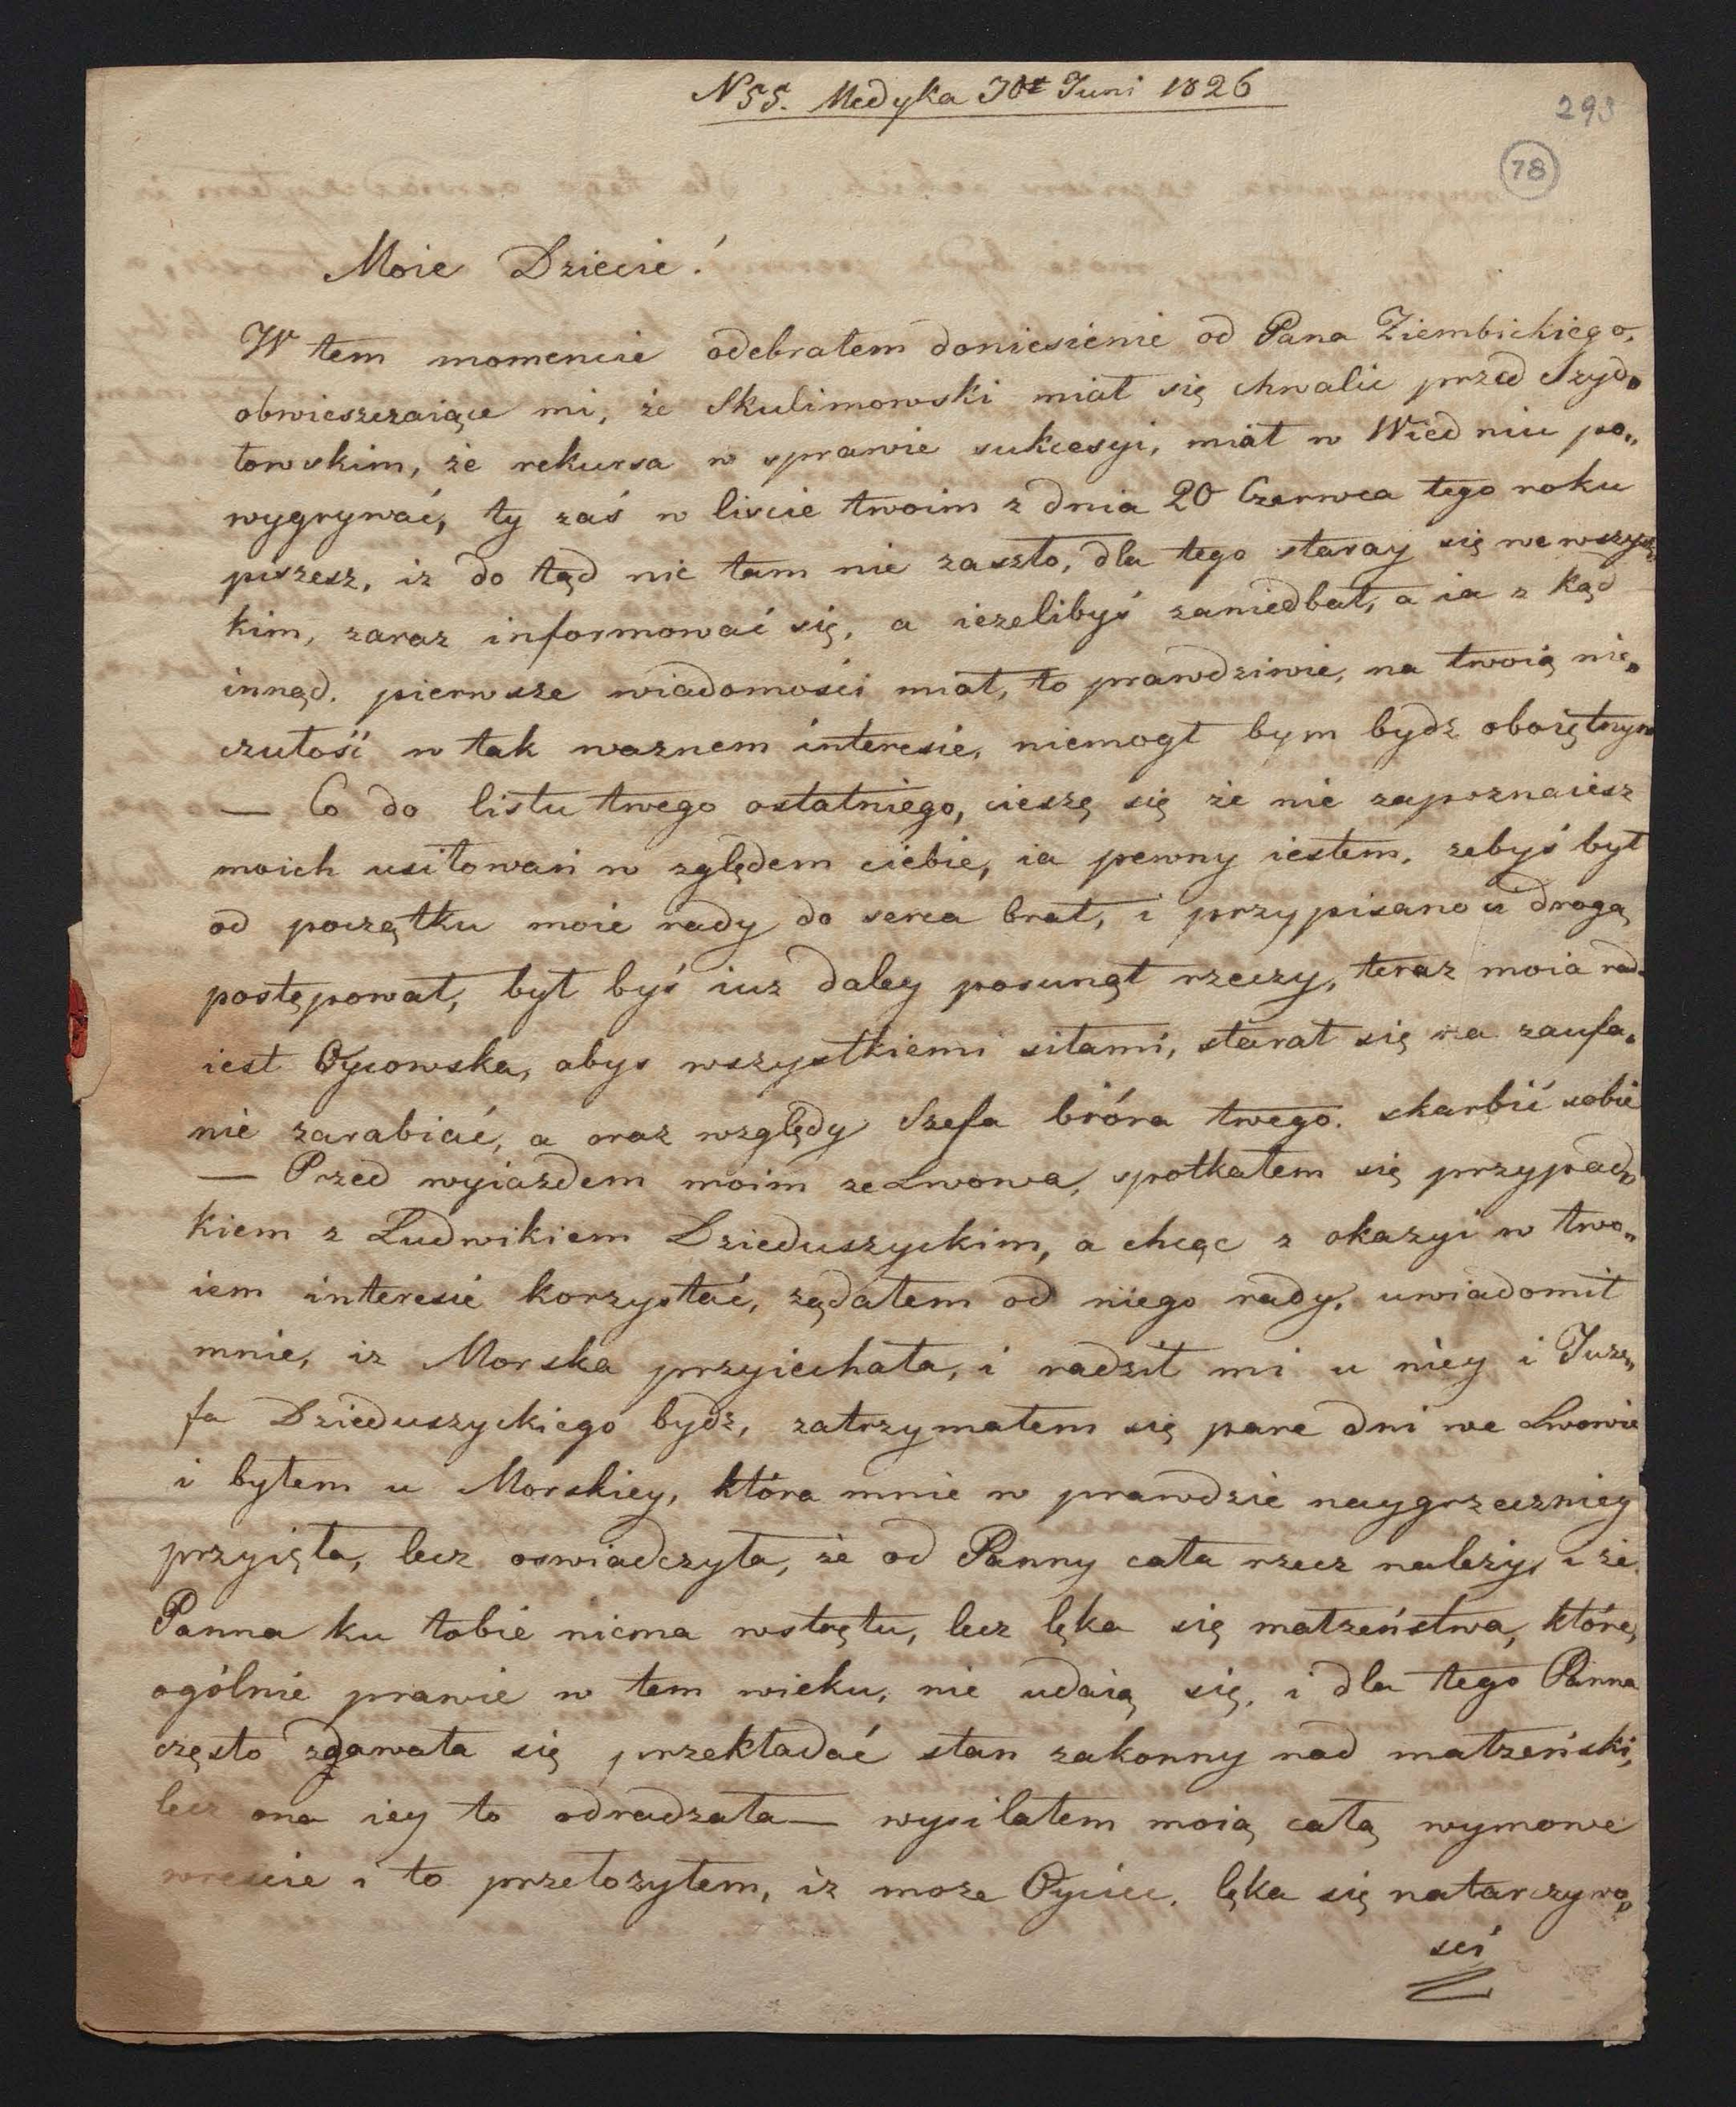 N 55. Medyka 30t Juni 1826
293
78
Moie Dziecie!
W tem momencie odebrałem doniesienie od Pana Ziembickiego,
obwieszczaiące mi, że Skulimowski miał się chwalic przed Szyd„
łowskim, że rekursa w sprawie sukcesyi, miał w Wiedniu po„
wygrywać, ty zaś w liscie twoim z dnia 20 Czerwca tego roku
piszesz, iz do tąd nic tam nie zaszło, dla tego staray się we wszyst„
kim, zaraz informować się, a ieżelibyś zaniedbał, a ia z kąd
innąd. pierwsze wiadomości miał, to prawdziwie, na twoią nie„
czułość w tak waznem interesie, niemogł bym bydz oboiętnym
— Co do listu twego ostatniego, cieszę się że nie zapoznaiesz
moich usiłowań w zględem ciebie, ia pewny iestem, zebyś był
od początku moie rady do serca brał, i przypisano ci drogą
postępował, był byś iuz daley posunął rzeczy, teraz moia rada
iest Oycowska, abys wszystkiemi siłami, starał się na zaufa„
nie zarabiać, a oraz względy Szefa bióra twego. skarbić sobie
— Przed wyiazdem moim ze Lwowa, spotkałem się przypad„
kiem z Ludwikiem Dzieduszyckim, a chcąc z okazyi w two„
iem interesie korzystać, ządałem od niego rady, uwiadomił
mnie, iz Morska przyiechała, i radził mi u niey i Juze„
fa Dzieduszyckiego bydź, zatrzymałem się pare dni we Lwowie
i byłem u Morskiey, która mnie w prawdzie naygrzeczniey
przyięła, lecz oswiadczyła, że od Panny cała rzecz należy, i że
Panna ku tobie niema wstrętu, lecz lęka się małzeństwa, które,
ogólnie prawie w tem wieku, nie udaią się, i dla tego Panna
często zdawała się przekładać stan zakonny nad małzeński,
lecz ona iey to odradzała— wysilałem moią całą wymowe
wrescie i to przełozyłem, iz moze Oyciec, lęka się natarczywo„
sci